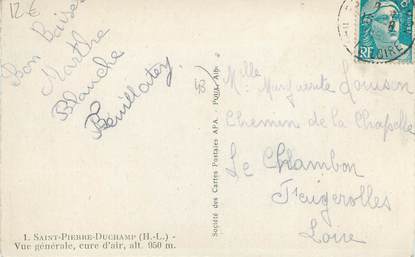 12€
Bon Baiser
Marthe
Blanche
43
RF
OIRE
Mlle Marguerite
Chemin de la Chapelle
Le Chambon
Feugerolles
Loire
Société des Cartes Postales APA - Poux, Albi
1. SAINT-PIERRE-DUCHAMP (H.-L.) -
Vue générale, cure d'air, alt. 950 m.